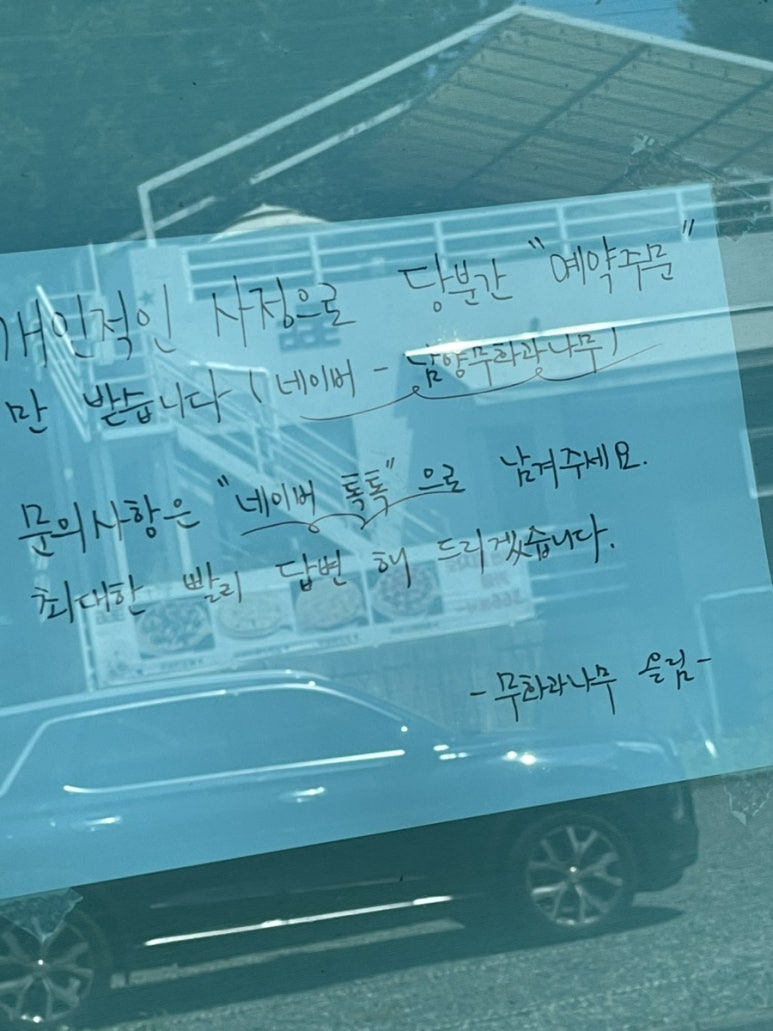 개인적인 사정으로 당분간 "예약주문"
만 받습니다 (네이버 - 남양무화과나무)
문의사항은 "네이버 톡톡"으로 남겨주세요.
최대한 빨리 답변 해 드리겠습니다.
- 무화과나무 올림 -